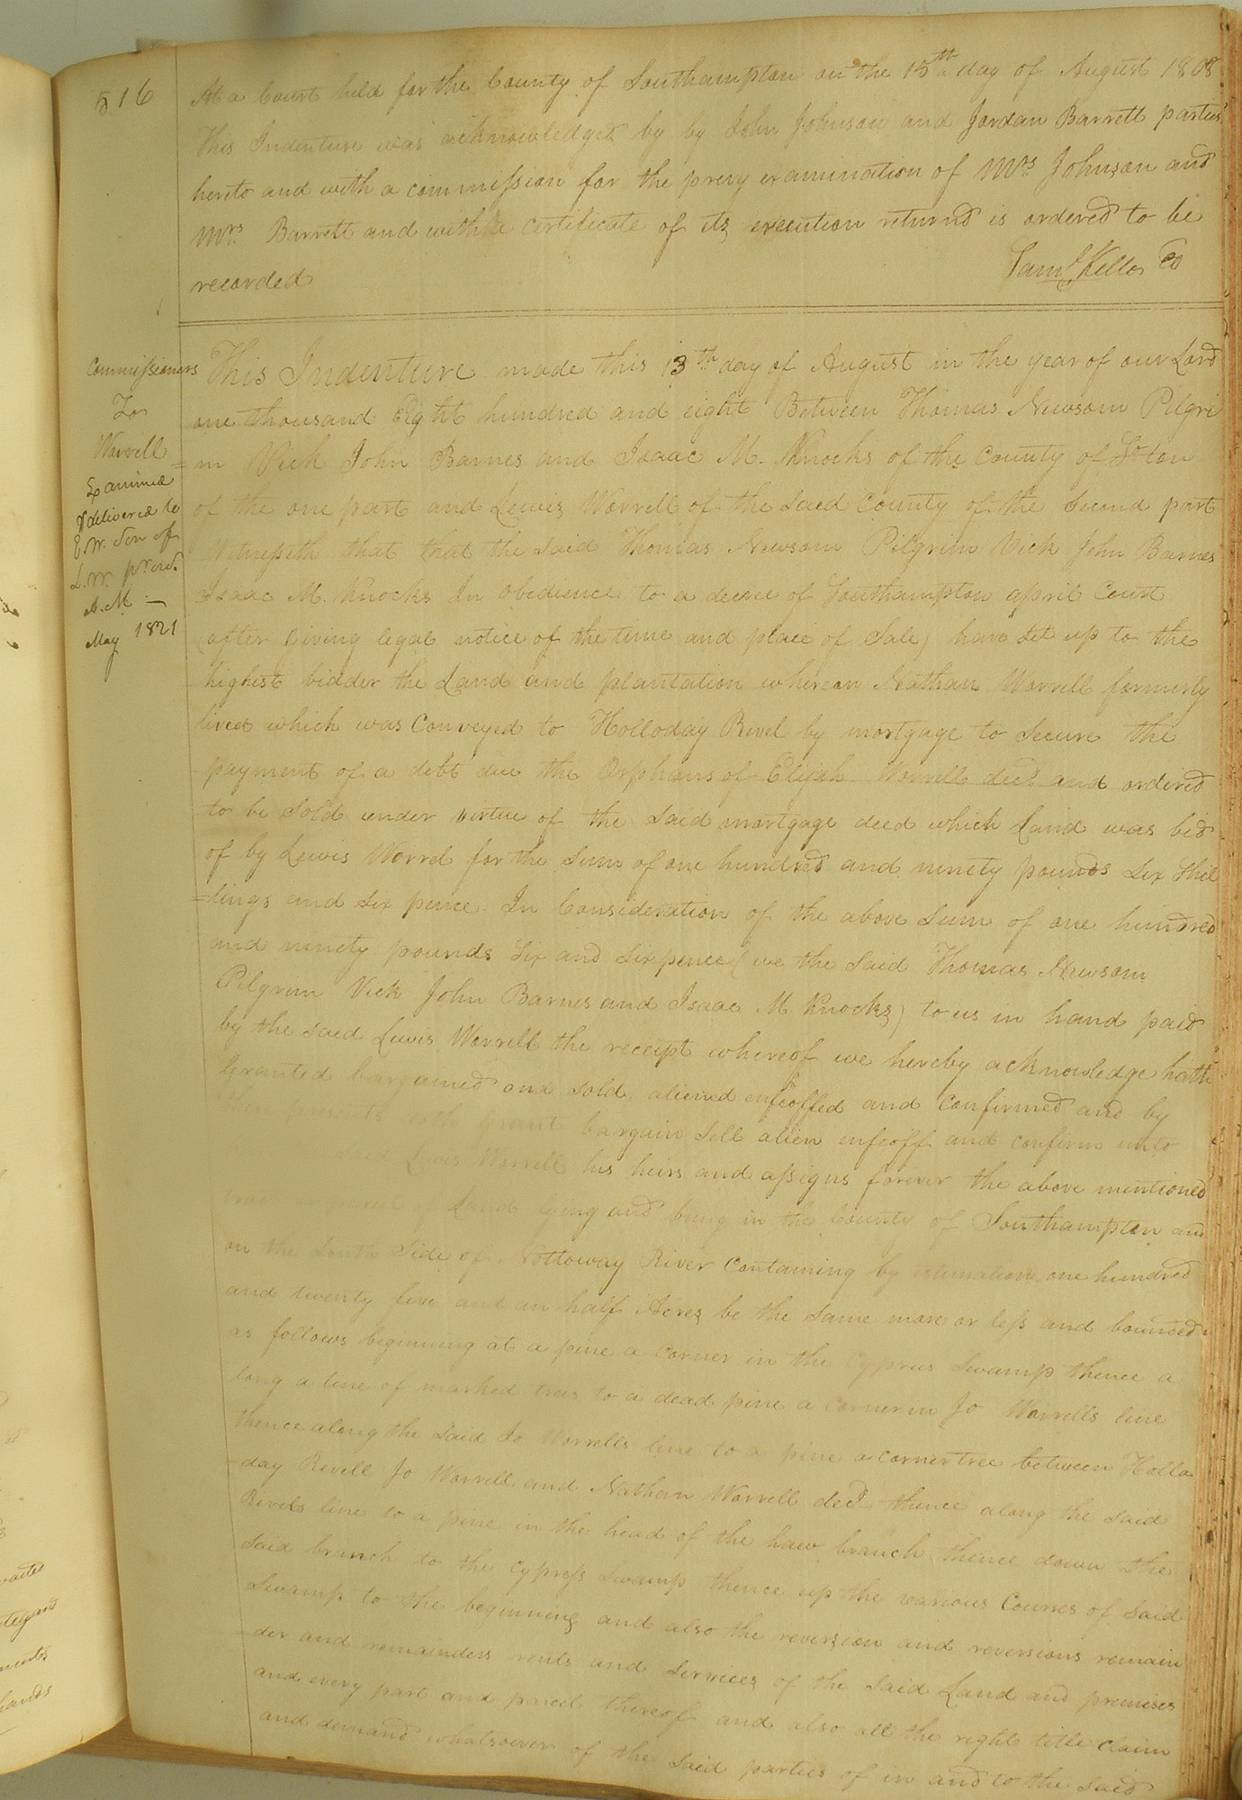 516
At a Court held for the County of Southampton on the 15th day of August 1808
This Indenture was acknowledged by by John Johnson and Jordan Barrett parties
hereto and with a commission for the privy examination of Mrs Johnson and
Mrs Barrett and with the certificate of its execution returnd is ordered to be
recorded
Saml Kello CC
Commissioners
To
Worrell
Examined
& delivered to
E.W. Son of
L.W. pr ord.
A.M. —
May 1821
This Indenture made this 13th day of August in the year of our Lord
one thousand Eight hundred and eight Between Thomas Newsom Pilgri
=m Vick John Barnes and Isaac M. Knocks of the County of So.ton
of the one part and Lewis Worrell of the said County of the Second part
Witnesseth that that the said Thomas Newsom Pilgrim Vick John Barnes
Isaac M. Knocks In obedience to a decree of Southampton april Court
(after Giving legal notice of the time and place of Sale) have set up to the
highest bidder the Land and plantation whereon Nathan Worrell formerly
lived which was Conveyed to Holloday Rivel by mortgage to Secure the
payment of a debt due the Orphans of Elijah Worrell decd. and ordered
to be Sold under virtue of the said mortgage deed which Land was bid
of by Lewis Worrel for the Sum of one hundred and ninety pounds Six Shil
=lings and Six pence In Consideration of the above Sum of one hundred
and ninety pounds Six and Six pence (we the said Thomas Newsom
Pilgrim Vick John Barnes and Isaac M Knocks) to us in hand paid
by the said Lewis Worrell the receipt whereof we hereby acknowledge hath
Granted bargained and Sold aliened enfeoffed and Confirmed and by
these presents doth grant bargain Sell alien enfeoff and confirm unto
Lewis Worrell his heirs and assigns forever the above mentioned
of Land lying and being in the County of Southampton and
on the South Side of Nottoway River Containing by estimation one hundred
and twenty five and an half Acres be the Same more or less and bounded
as follows beginning at a pine a Corner in the Cyprus Swamp thence a
long a line of marked trees to a dead pine a Corner in Jo Worrells line
thence along the said Jo Worrells line to a pine a corner tree between Holla
=day Revell Jo Worrell and Nathan Worrell decd. thence along the said
Rivels line to a pine in the head of the haw branch thence down the
Said branch to the Cypress Swamp thence up the various Courses of Said
Swamp to the beginning and also the reversion and reversions remain
=der and remainders rents and Services of the said Land and premises
and every part and parcel thereof and also all the right title claim
and demand whatsoever of the said parties of in and to the said